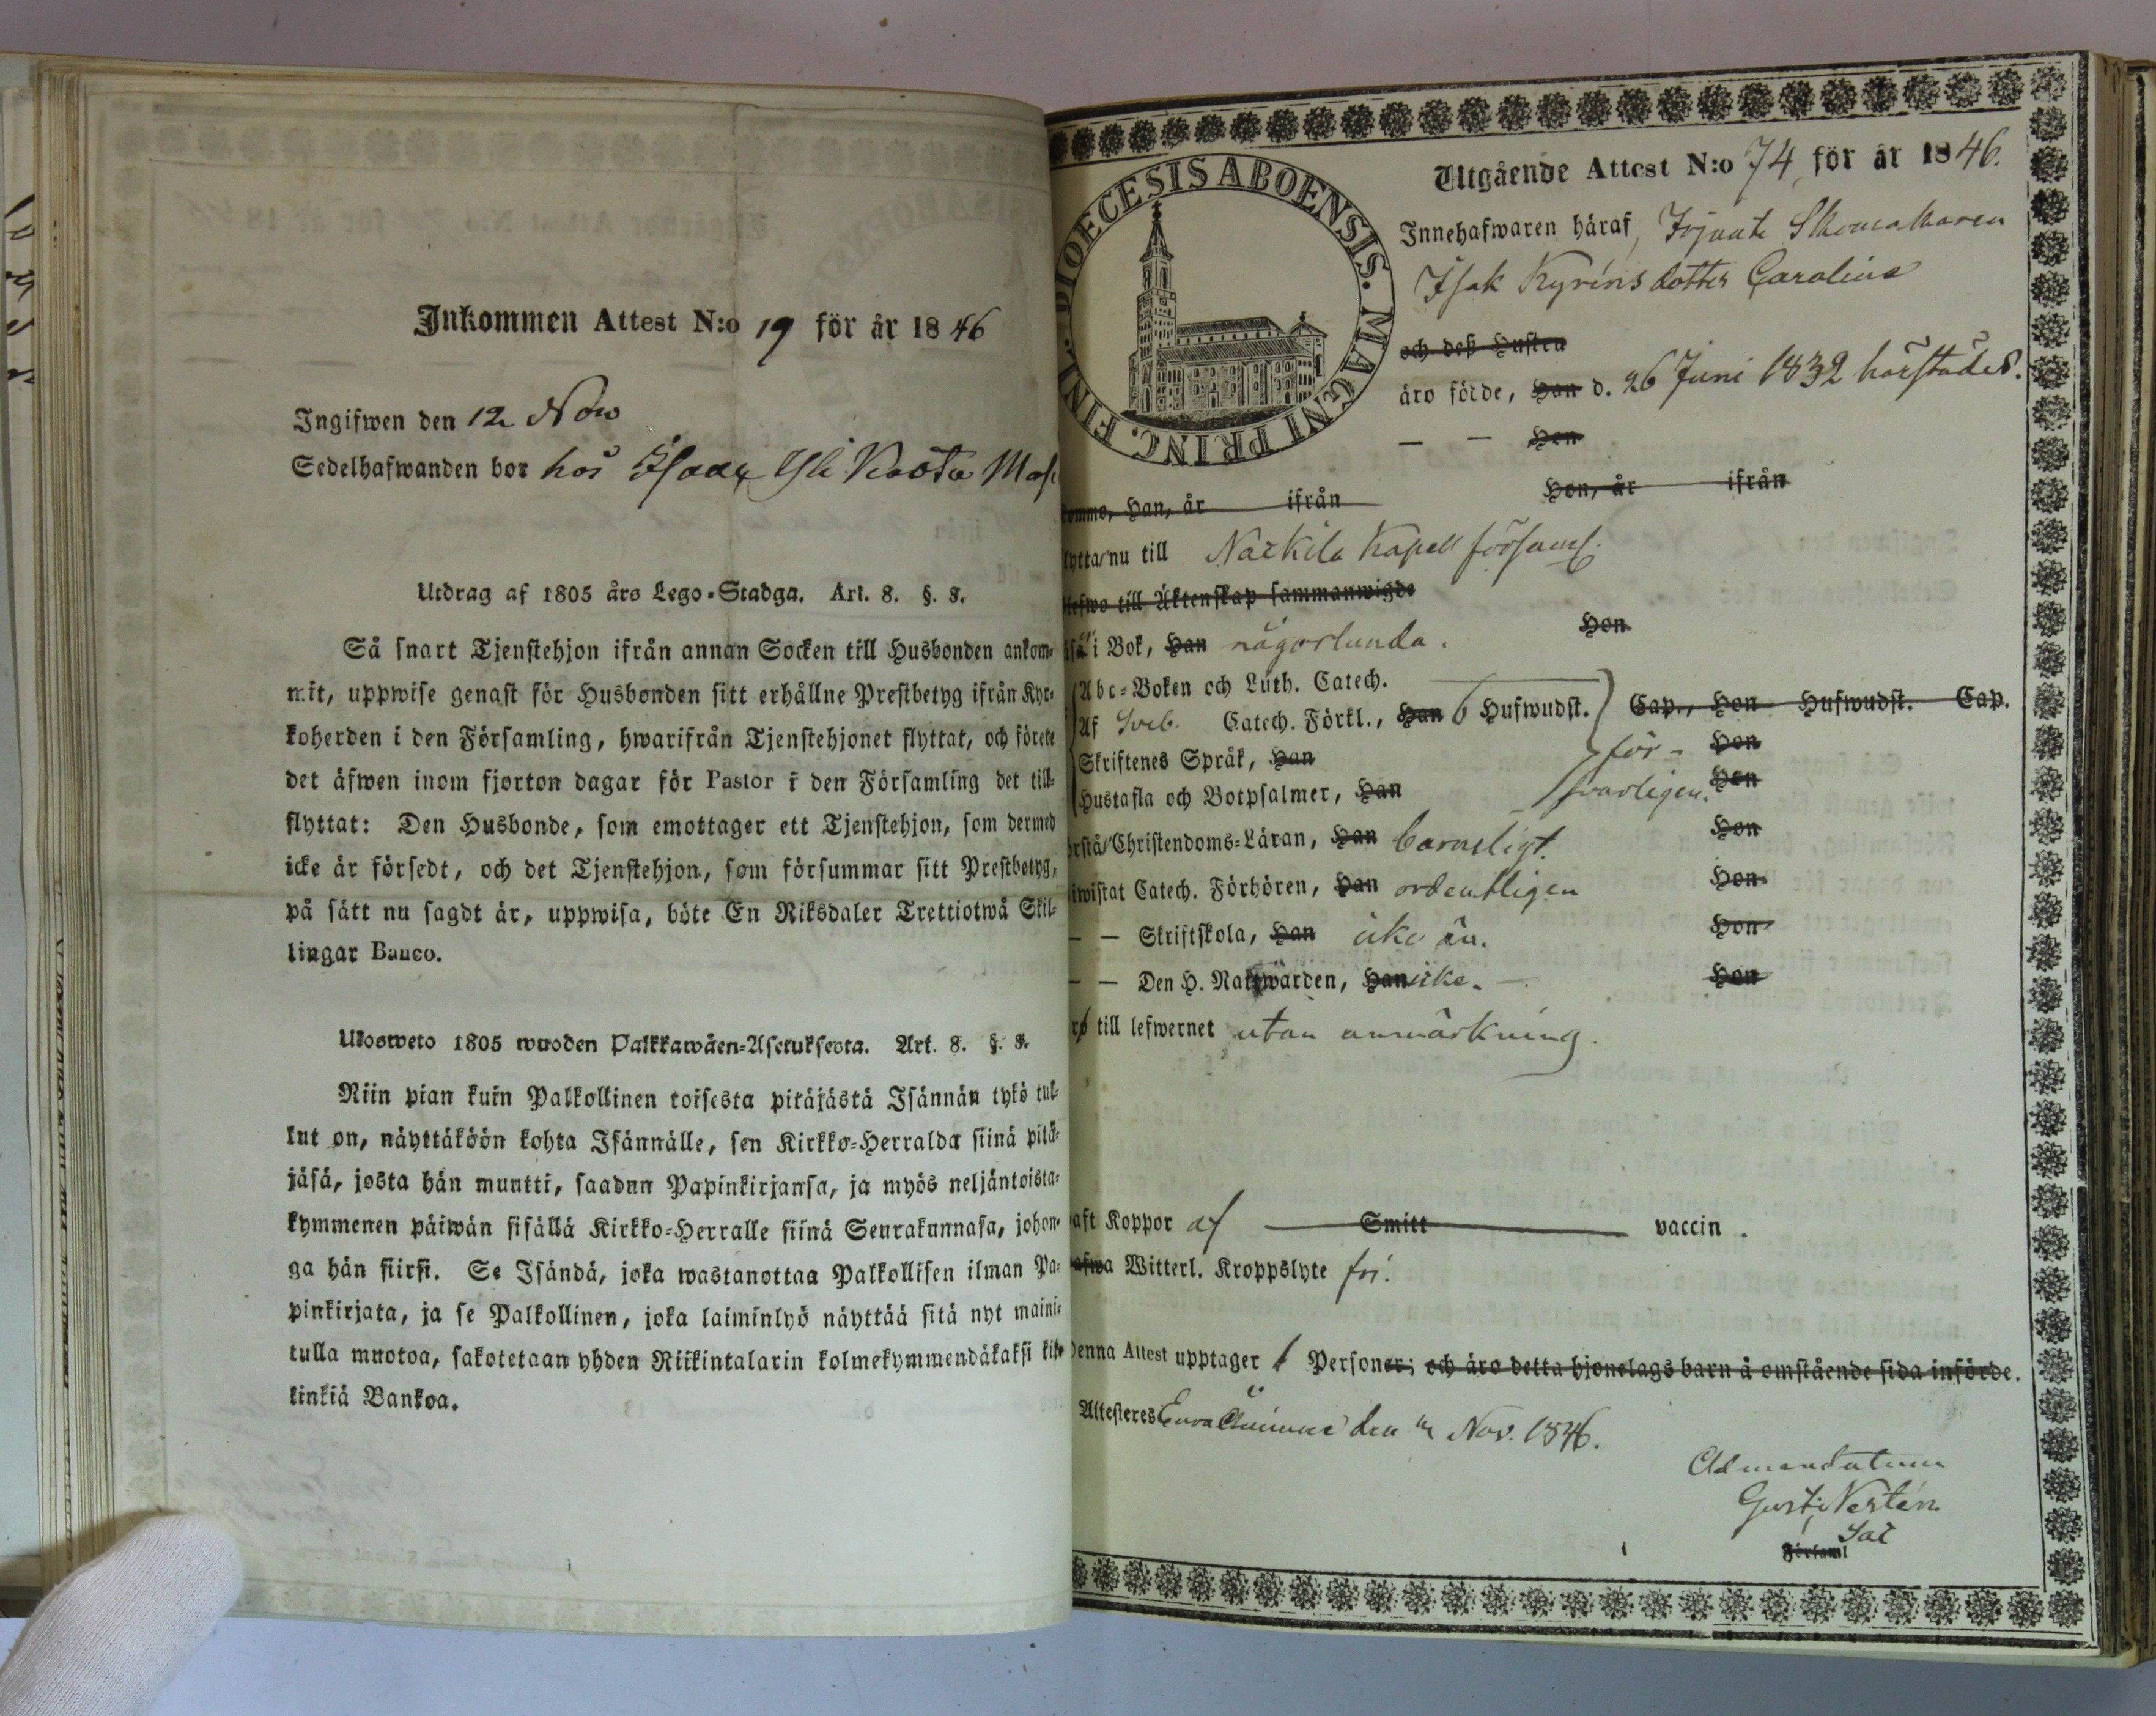 Inkommen Attest N:o 19 för år 1846
Ingifwen den 12 Nov
Sedelhafwanden bor hos
Utdrag af 1805 års Lego-Stadga. Art. 8. §. 8.
Så snart Tjenstehjon ifrån annan Socken till Husbonden ankom-
mit, uppwise genast för Husbonden sitt erhållne Prestbetyg ifrån Kyr-
koherden i den Församling, hwarifrån Tjenstehjonet flyttat, och förete
det äfwen inom fjorton dagar för Pastor i den Församling det till-
flyttat: Den Husbonde, som emottager ett Tjenstehjon, som dermed
icke är försedt, och det Tjenstehjon, som försummar sitt Prestbetyg,
på sätt nu sagdt är, uppwisa, böte En Riksdaler Trettiotwå Skil-
lingar Banco.
Ulosweto 1805 wuoden Palkkawäen-Asetuksesta. Art. 8. §. 8.
Niin pian kuin Palkollinen toisesta pitäjästä Isännän tykö tul-
lut on, näyttäköön kohta Isännälle, sen Kirkko-Herralda siinä pitä-
jäsä, josta hän muutti, saadun Papinkirjansa, ja myös neljäntoista-
kymmenen päiwän sisällä Kirkko-Herralle siinä Seurakunnasa, johon-
ga hän siirsi. Se Isändä, joka wastanottaa Palkollisen ilman Pa-
pinkirjata, ja se Palkollinen, joka laiminlyö näyttää sitä nyt maini-
tulla muotoa, sakotetaan yhden Riikintalarin kolmekymmendäkaksi kil-
linkiä Bankoa.
DIOECESIS ABOENSIS. MAGNI PRINC. FINL.
Utgående Attest N:o 74, för år 1846.
Innehafwaren häraf, Skomakaren
Isak Kyréns dotter Carolina
och deß Hustru
äro födde, Han d. 26 Juni 1832 härstädes.
— — Hon
komne, Han, år ifrån Hon, år ifrån
flytta nu till Nackila Kapell församl.
blefwo till Äktenskap sammanwigde
läsa i Bok, Han någorlunda. Hon
Abc-Boken och Luth. Catech.
Af Sveb. Catech. Förkl., Han 6 Hufwudst. Cap., Hon Hufwudst. Cap.
Skriftenes Språk, Han för- Hon
Hustafla och Botpsalmer, Han svarligen. Hon
förstå Christendoms-Läran, Han barnsligt. Hon
biwistat Catech. Förhören, Han ordentligen Hon
— — Skriftskola, Han icke än. Hon
— — Den H. Nattwarden, Han icke. — Hon
äro till lefwernet utan anmärkning.
haft Koppor af Smitt vaccin.
hafwa Witterl. Kroppslyte fri.
Denna Attest upptager 1 Personer; och äro detta hjonelags barn å omstående sida införde.
Attesteres Eura den Nov. 1846.
Ad mandatum
Gust. Nestén
Sac
Församl